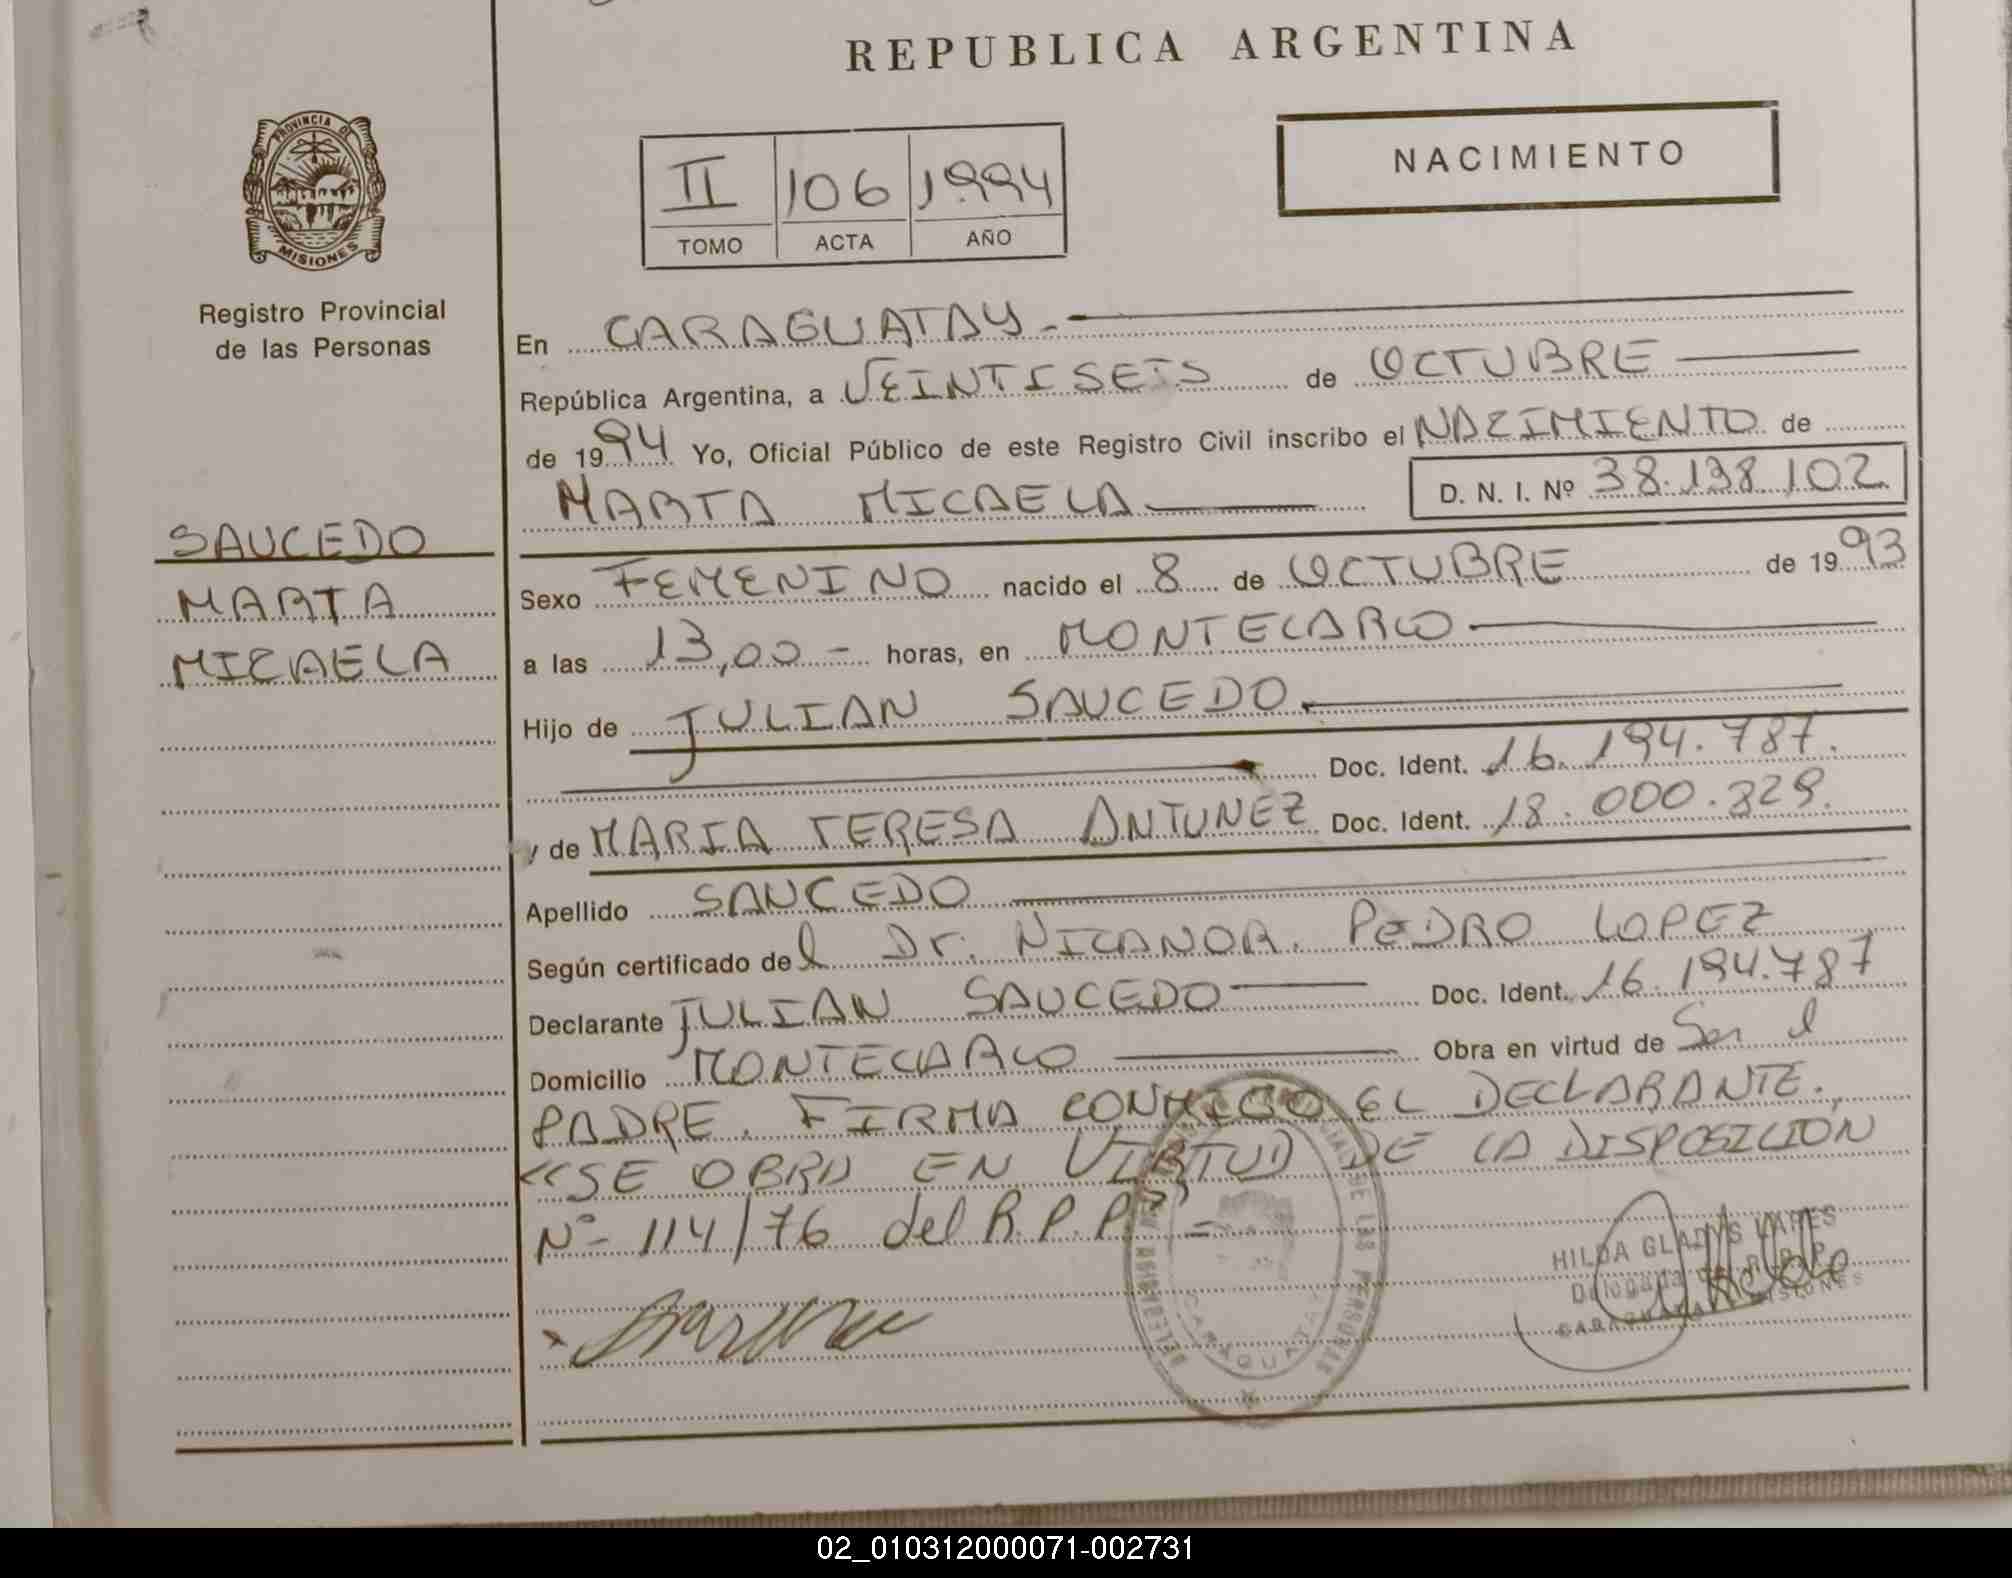 REPUBLICA ARGENTINA
PROVINCIA DE
MISIONES
Registro Provincial
de las Personas
II 106 1994
TOMO ACTA AÑO
NACIMIENTO
En CARAGUATAY.-
República Argentina, a VEINTISEIS de OCTUBRE
de 1994 Yo, Oficial Público de este Registro Civil inscribo el NACIMIENTO de
MARTA MICAELA D. N. I. Nº 38.138.102.
SAUCEDO
MARTA
MICAELA
Sexo FEMENINO nacido el 8 de OCTUBRE de 1993
a las 13,00 - horas, en MONTECARLO
Hijo de JULIAN SAUCEDO.
Doc. Ident. 16.194.787.
y de MARIA TERESA ANTUNEZ Doc. Ident. 18.000.329.
Apellido SAUCEDO
Según certificado del Dr. NICANOR. PEDRO LOPEZ
Declarante JULIAN SAUCEDO Doc. Ident. 16.194.787
Domicilio MONTECARLO Obra en virtud de Ser el
PADRE. FIRMA CONMIGO EL DECLARANTE.,
<<SE OBRA EN VIRTUD DE LA DISPOSICION
Nº- 114/76 del R.P.P.>> -
DE LAS PERSONAS
CARAGUATAY
HILDA GLADYS
Delegada R.P.P.
CARAGUATAY MISIONES
02_010312000071-002731